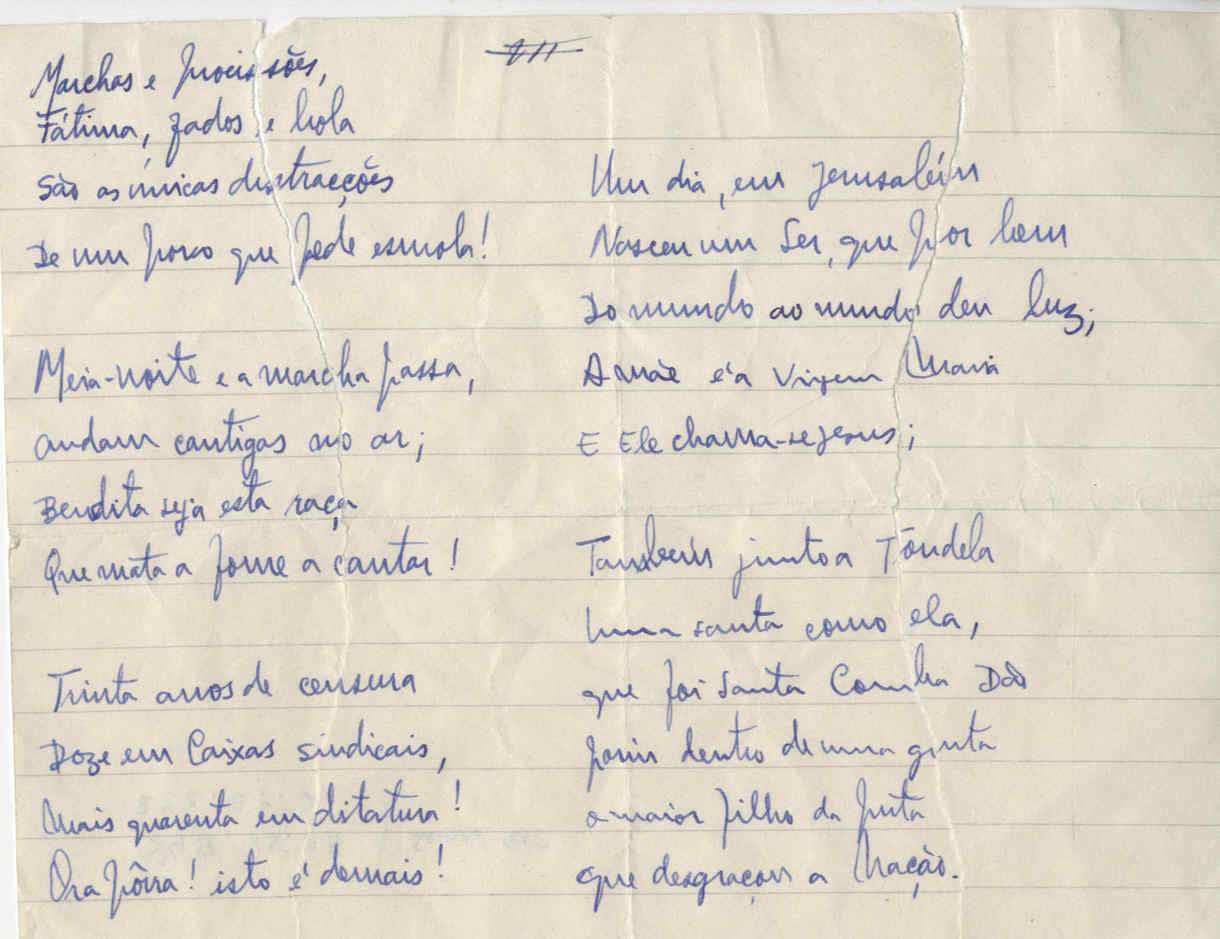 Marchas e Procissões,
Fátima, fados e bola
São as únicas distracções
De um povo que pede esmola!
Meia-noite e a marcha passa,
andam cantigas no ar;
Bendita seja esta raça
Que mata a fome a cantar!
Trinta anos de censura
Doze em Caixas sindicais,
Mais quarenta em ditatura!
Ora pôrra! isto é demais!
Um dia, em Jerusalém
Nasceu um Ser, que por bem
Do mundo ao mundo deu luz;
A mãe é a Virgem Maria
E Ele chama-se Jesus;
Também junto a Tondela
Uma santa como ela,
que foi Santa Comba Dão
pariu dentro de uma gruta
o maior filho da puta
que desgraçou a Nação.